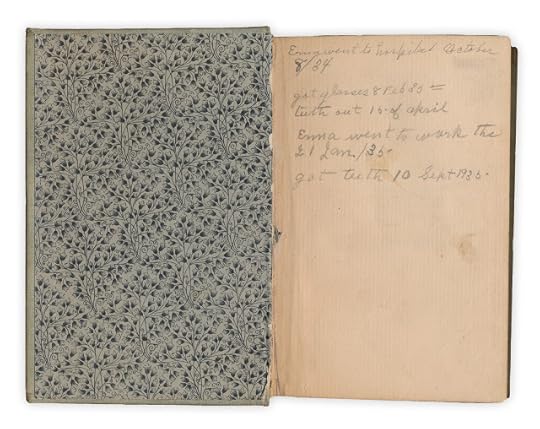 Emma went to hospital October
8/34
got glasses 8 Feb 35 =
teeth out 15 of april
Emma went to work the
21 Jan /35.
got teeth 10 Sept 1935.